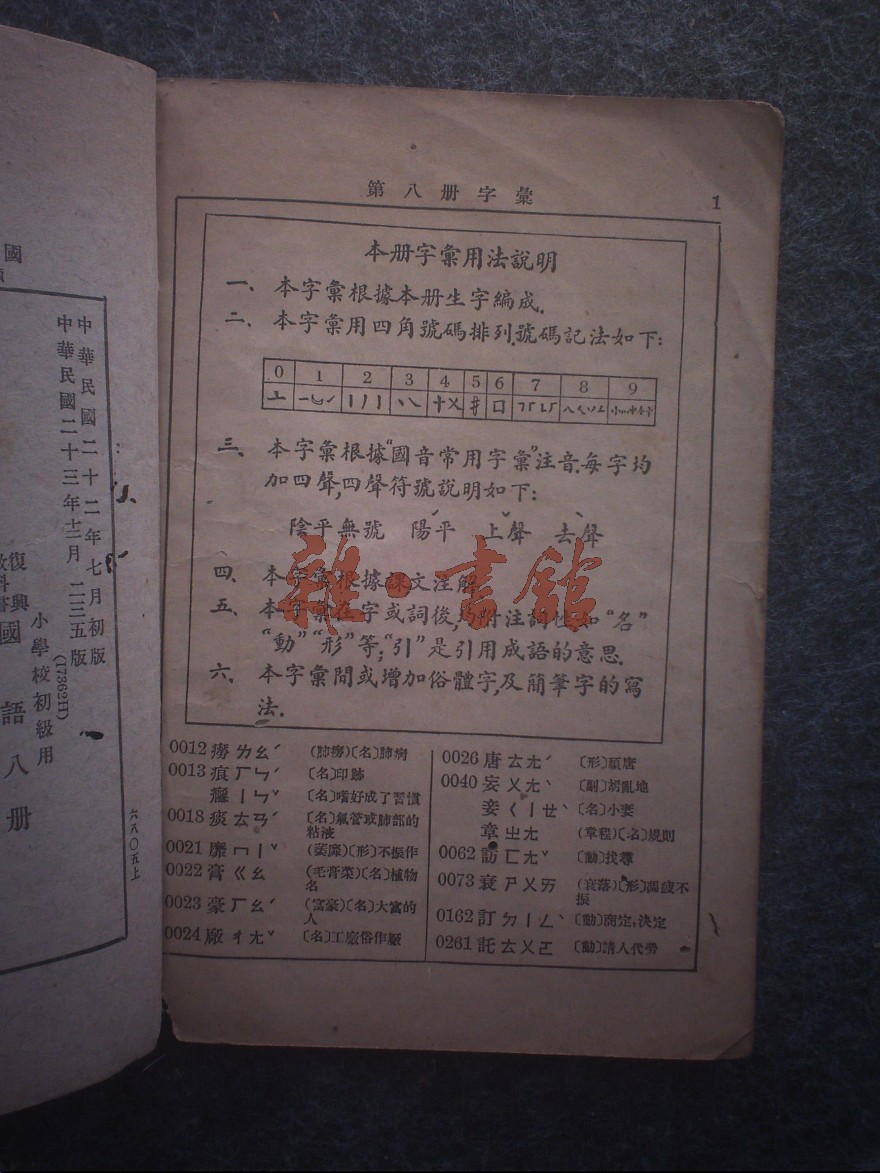 第八册字彙
1
本册字彙用法說明
一、本字彙根據本册生字編成.
二、本字彙用四角號碼排列.號碼記法如下:
0 1 2 3 4 5 6 7 8 9
三、本字彙根據“國音常用字彙”注音.每字均
加四聲,四聲符號說明如下:
陰平無號 陽平ˊ 上聲ˇ 去聲ˋ
四、本字彙根據課文注解.
五、本字彙在字或詞後,均附注詞性如“名”
“動”“形”等;“引”是引用成語的意思.
六、本字彙間或增加俗體字,及簡筆字的寫
法.
0012 癆 ㄌㄠˊ (肺癆)〔名〕肺病
0013 痕 ㄏㄣˊ 〔名〕印跡
癮 ㄧㄣˇ 〔名〕嗜好成了習慣
0018 痰 ㄊㄢˊ 〔名〕氣管或肺部的
粘液
0021 靡 ㄇㄧˇ (萎靡)〔形〕不振作
0022 膏 ㄍㄠ (毛膏菜)〔名〕植物
名
0023 豪 ㄏㄠˊ (富豪)〔名〕大富的
人
0024 廠 ㄔㄤˇ 〔名〕工廠俗作厰
0026 唐 ㄊㄤˊ 〔形〕頹唐
0040 妄 ㄨㄤˋ 〔副〕胡亂地
妾 ㄑㄧㄝˋ 〔名〕小妻
章 ㄓㄤ (章程)〔名〕規則
0062 訪 ㄈㄤˇ 〔動〕找尋
0073 衰 ㄕㄨㄞ (衰落)〔形〕凋疲不
振
0162 訂 ㄉㄧㄥˋ 〔動〕商定,決定
0261 託 ㄊㄨㄛ 〔動〕請人代勞
雜·書館
國
中華民國二十二年七月初版
中華民國二十三年十二月二三五版
(17362H)
小學校初級用
復興
教科書
國語八册
六八〇五上